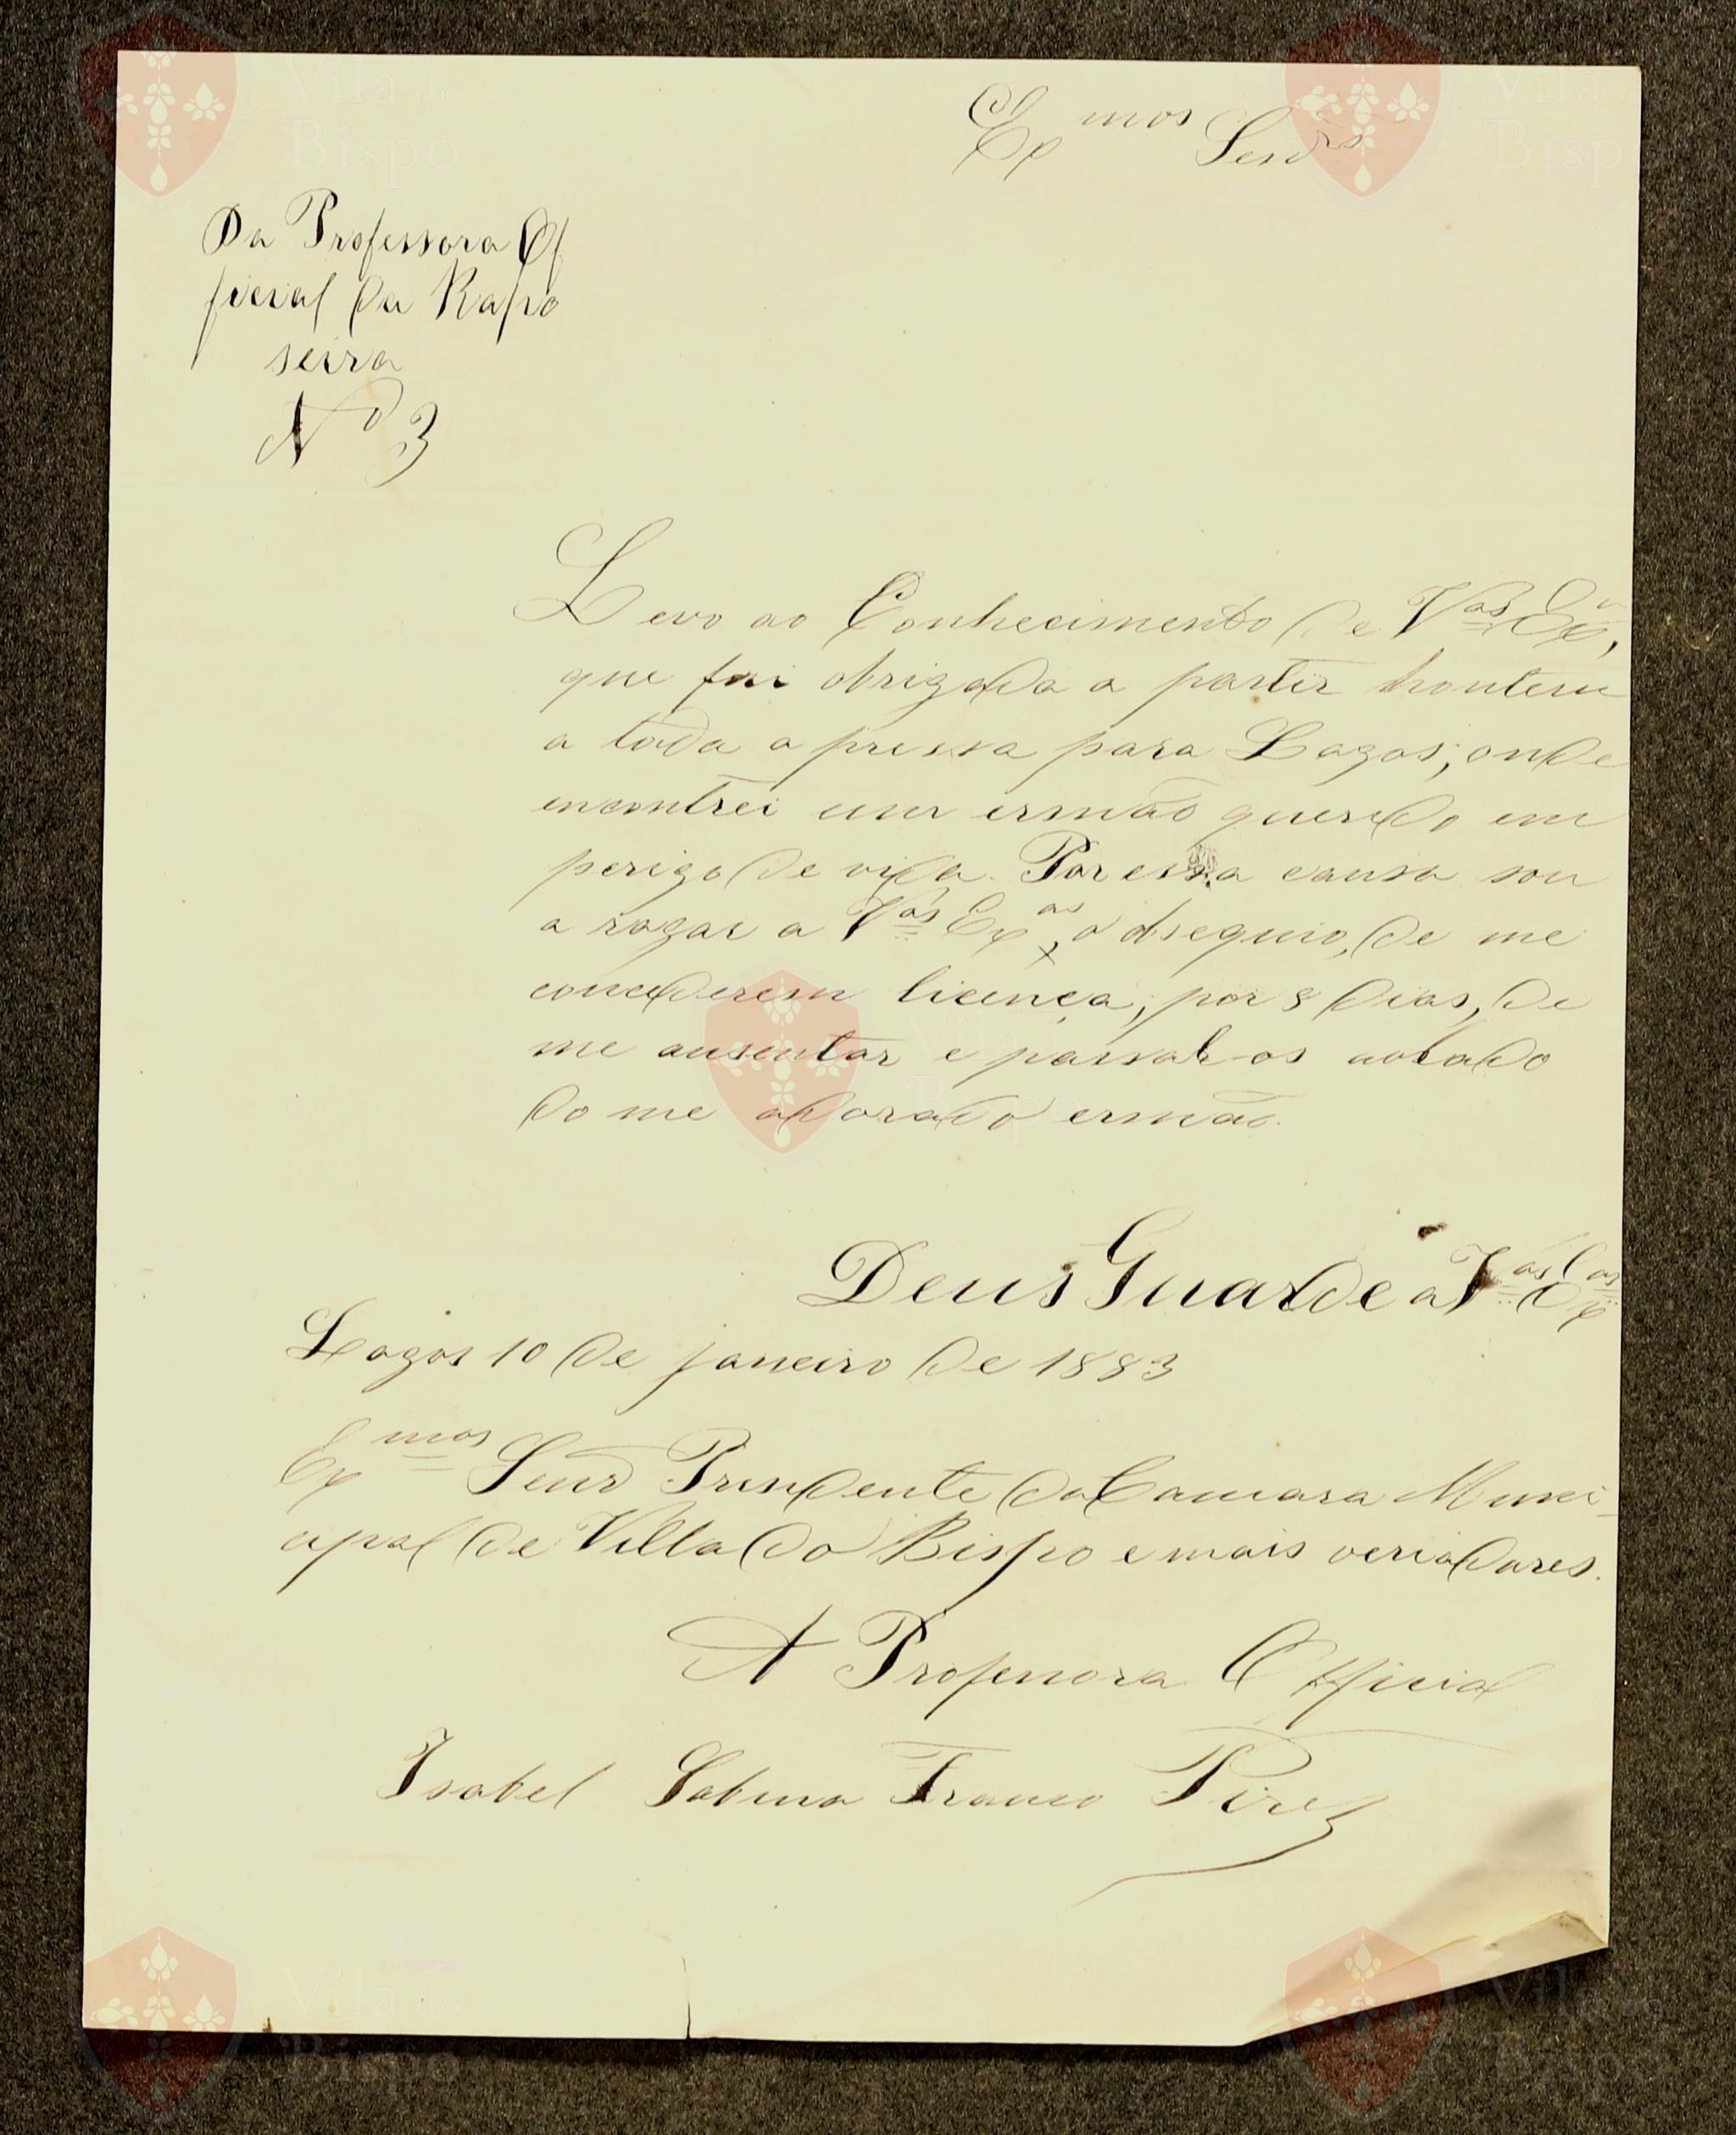 Ex mos Senrs
Da Professora Of
ficial da Rapo
seira
Nº 3
Levo ao Conhecimento de Vas Ex,
que fui obrigada a partir hontem
a toda a pressa para Lagos, onde
encontrei um ermão querido em
perigo de vida. Por essa causa sou
a rogar a Vas Ex as, o obsequio, de me
concederem licença, por 8 dias, de
me ausentar e passal-os ao lado
do me adorado ermão.
Deus Guarde a Vas Ex as
Lagos 10 de janeiro de 1883
Ex mos Senr Prendente da Camara Muni-
cipal de Villa do Bispo e mais veriadores.
A Professora Official
Isabel Sabina Franco Pirez
Vila do Bispo
Vila do Bispo
Vila do Bispo
Vila do Bispo
Vila do Bispo